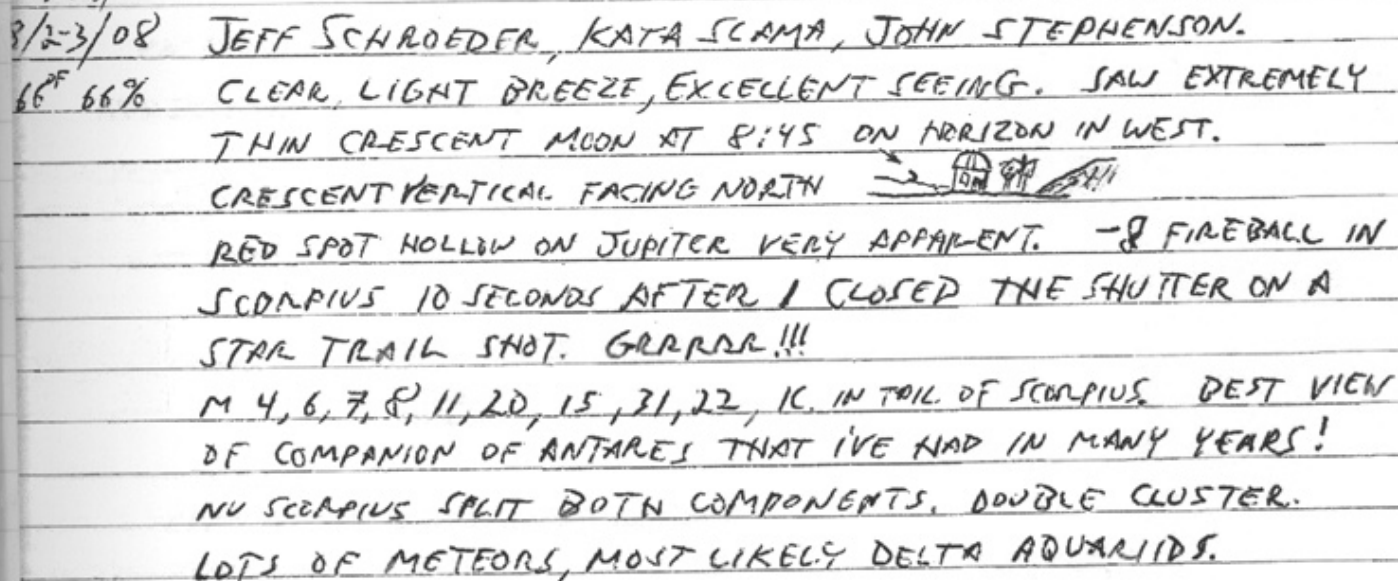 8/2-3/08 JEFF SCHROEDER, KATA SCAMA, JOHN STEPHENSON.
66°F 66% CLEAR, LIGHT BREEZE, EXCELLENT SEEING. SAW EXTREMELY
THIN CRESCENT MOON AT 8:45 ON HORIZON IN WEST.
CRESCENT VERTICAL FACING NORTH
RED SPOT HOLLOW ON JUPITER VERY APPARENT. -8 FIREBALL IN
SCORPIUS 10 SECONDS AFTER I CLOSED THE SHUTTER ON A
STAR TRAIL SHOT. GRRRRR!!!
M 4, 6, 7, 8, 11, 20, 15, 31, 22, IC. IN TAIL OF SCORPIUS. BEST VIEW
OF COMPANION OF ANTARES THAT I'VE HAD IN MANY YEARS!
NU SCORPIUS SPLIT BOTH COMPONENTS. DOUBLE CLUSTER.
LOTS OF METEORS, MOST LIKELY DELTA AQUARIIDS.